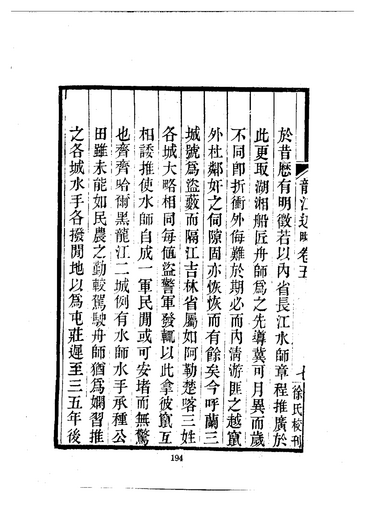 龍江述略卷五
七
徐氏校刊
於昔歷有明徵若以內省長江水師章程推廣於
此更取湖湘船匠舟師爲之先導冀可月異而歲
不同卽折衝外侮難於期必而內淸游匪之越竄
外杜鄰如之伺隙固亦恢恢而有餘矣今呼蘭三
城號爲盜藪而隔江吉林省屬如阿勒楚喀三姓
各城大略相同每値盜警軍發輒以此拿彼竄互
相諉推使水師自成一軍民閒或可安堵而無驚
也齊齊哈爾黑龍江二城例有水師水手承種公
田雖未能如民農之勤較駕駛舟師猶爲嫻習推
之各城水手各撥閒地以爲屯莊遲至三五年後
194